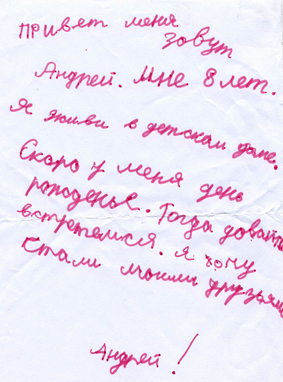 привет меня
зовут
Андрей. Мне 8 лет.
Я живи в детском доме.
Скоро у меня день
рожденье. Тогда довайте
встретемся. Я хочу
стали моими друзьями
Андрей!